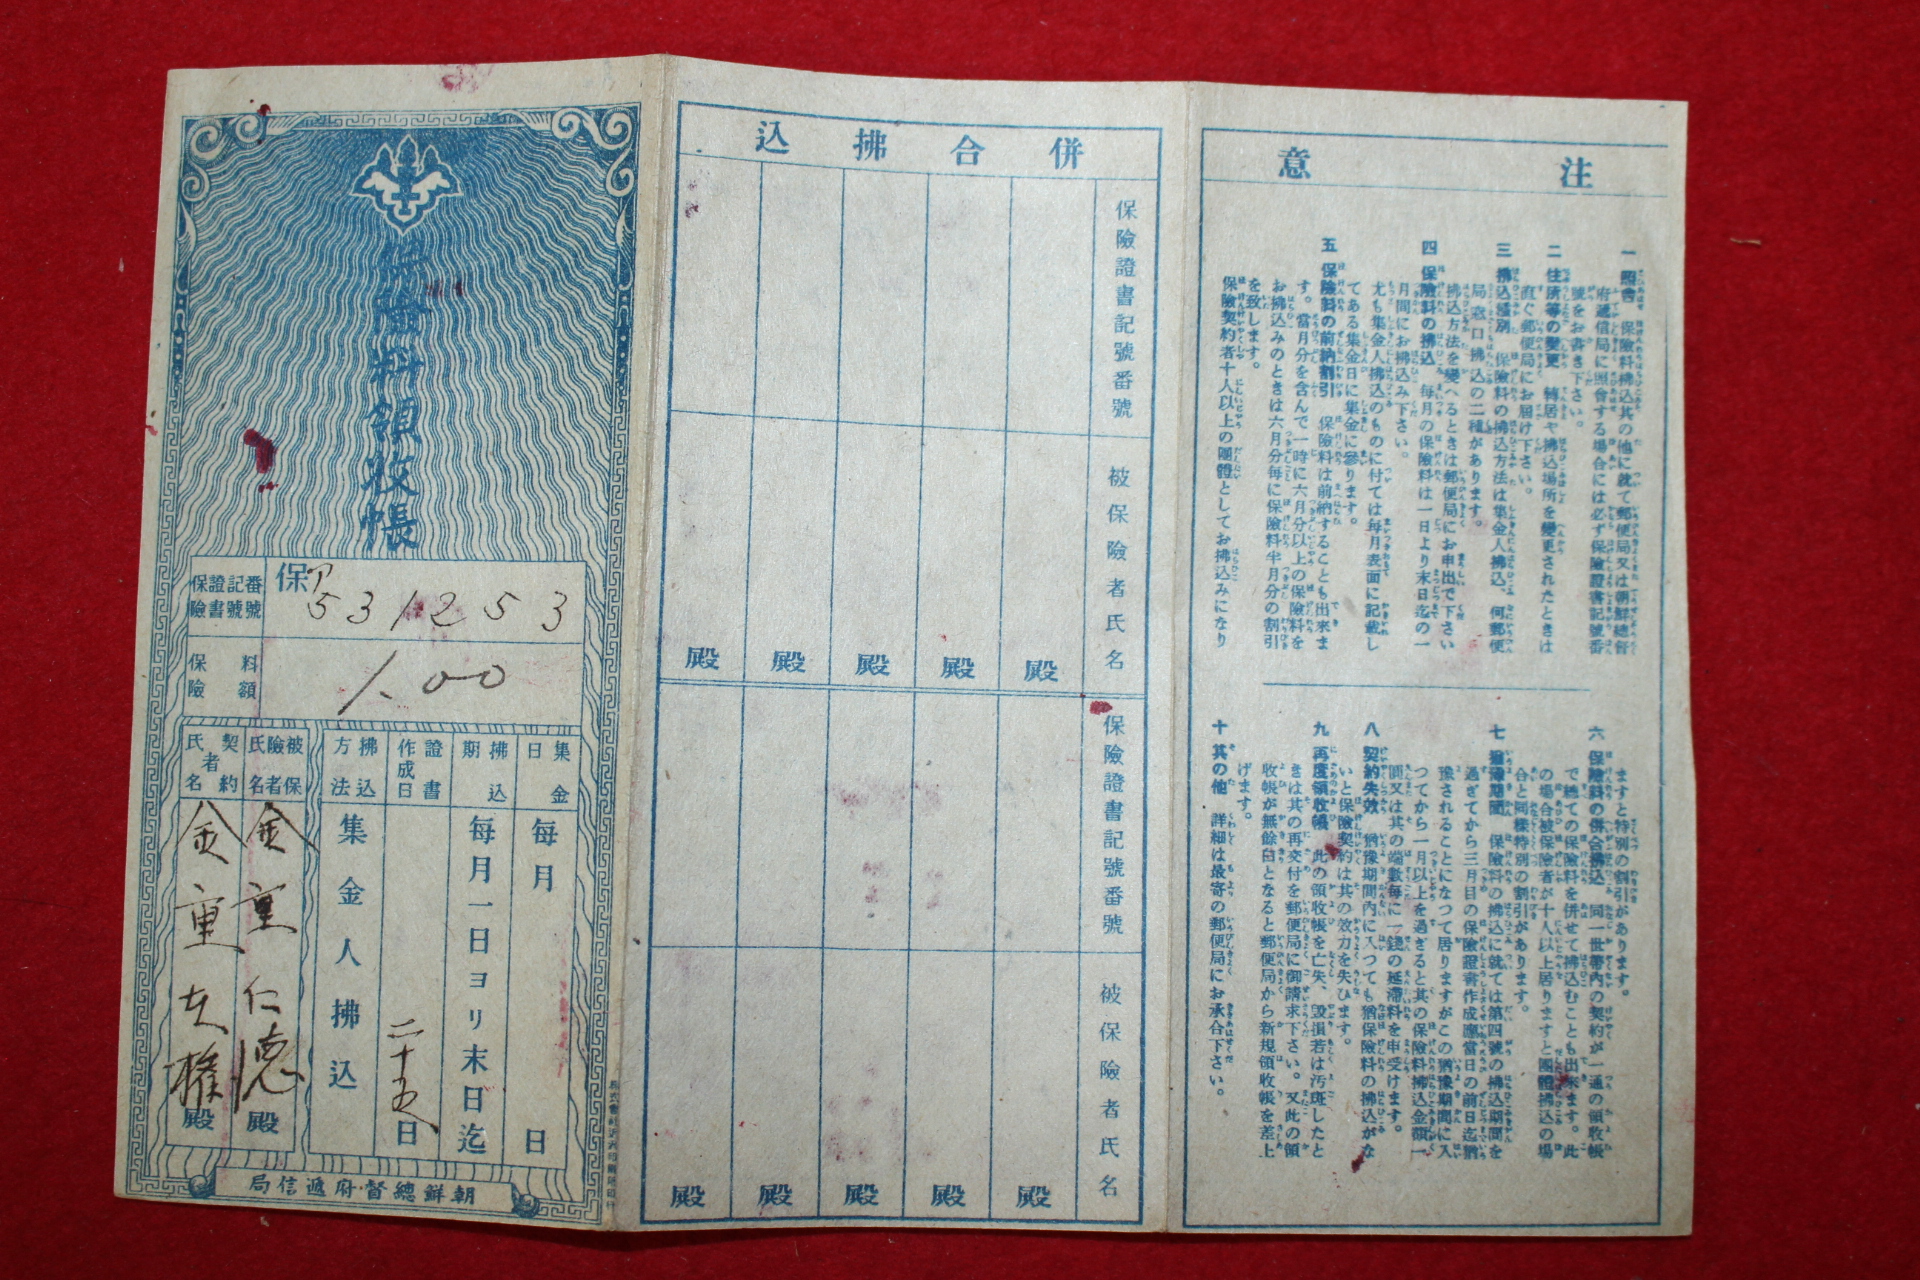 注意
一 照會 保險料拂込其の他に就て郵便局又は朝鮮總督
府遞信局に照會する場合には必ず保險證書記號番
號をお書き下さい。
二 住所等の變更 轉居や拂込場所を變更されたときは
直ぐ郵便局にお届け下さい。
三 拂込種別 保險料の拂込方法は集金人拂込、何郵便
局窓口拂込の二種があります。
拂込方法を變へるときは郵便局にお申出で下さい
四 保險料の拂込 毎月の保險料は一日より末日迄の一
月間にお拂込み下さい。
尤も集金人拂込のものに付ては毎月表面に記載し
てある集金日に集金に參ります。
五 保險料の前納割引 保險料は前納することも出來ま
す。當月分を含んで一時に六月分以上の保險料を
お拂込みのときは六月分毎に保險料半月分の割引
を致します。
保險契約者十人以上の團體としてお拂込みになり
ますと特別の割引があります。
六 保險料の併合拂込 同一世帶內の契約が一通の領收帳
で總ての保險料を併せて拂込むことも出來ます。此
の場合被保險者が十人以上居りますと團體拂込の場
合と同樣特別の割引があります。
七 猶豫期間 保險料の拂込に就ては第四號の拂込期間を
過ぎてから三月目の保險證書作成應當日の前日迄猶
豫されることになつて居りますがこの猶豫期間に入
つてから一月以上を過ぎると其の保險料拂込金額一
圓又は其の端數毎に一錢の延滯料を申受けます。
八 契約失效 猶豫期間內に入つても猶保險料の拂込がな
いと保險契約は其の效力を失ひます。
九 再度領收帳 此の領收帳を亡失、毀損若は汚斑したと
きは其の再交付を郵便局に御請求下さい。又此の領
收帳が無餘白となると郵便局から新規領收帳を差上
げます。
十 其の他 詳細は最寄の郵便局にお承合下さい。
併合拂込
保險證書記號番號
被保險者氏名
殿
殿
殿
殿
殿
保險證書記號番號
被保險者氏名
殿
殿
殿
殿
殿
保險料領收帳
保險證書記號番號
保 531253
保險料額
1.00
集金日
每月 日
拂込期
每月一日ヨリ末日迄
證書作成日
二十五日
拂込方法
集金人拂込
被保險者氏名
金重仁德殿
契約者氏名
金重 權殿
朝鮮總督府遞信局